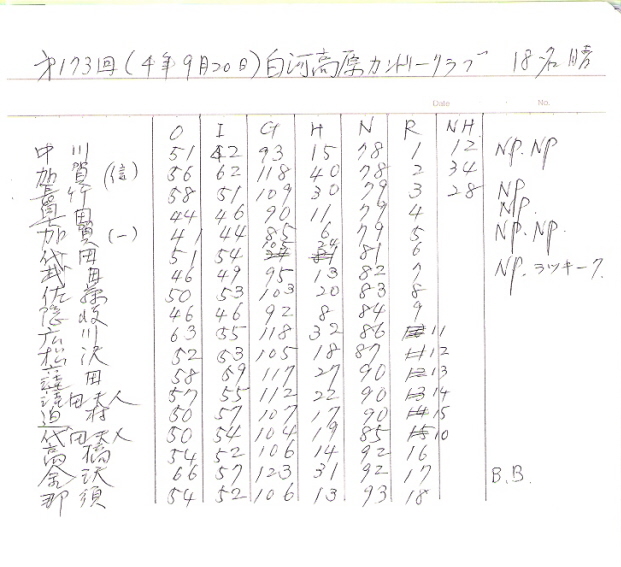 第173回(4年9月20日)白河高原カントリークラブ 18名 勝
Date No.
O I G H N R NH
中川 51 42 93 15 78 1 12 NP.NP
加賀(信) 56 62 118 40 78 2 34
長竹 58 51 109 30 79 3 28 NP
黒田 44 46 90 11 79 4 NP.
加賀(一) 41 44 85 6 79 5 NP.NP.
代田 51 54 105 24 81 6
武田 46 49 95 13 82 7 NP.ラッキー7
佐藤 50 53 103 20 83 8
隠岐 46 46 92 8 84 9
広川 63 55 118 32 86 11
松沢 52 53 105 18 87 12
田 58 59 117 27 90 13
田夫人 57 55 112 22 90 14
迫村 50 57 107 17 90 15
代田夫人 50 54 104 19 85 10
高橋 54 52 106 14 92 16
金沢 66 57 123 31 92 17 B.B.
那須 54 52 106 13 93 18